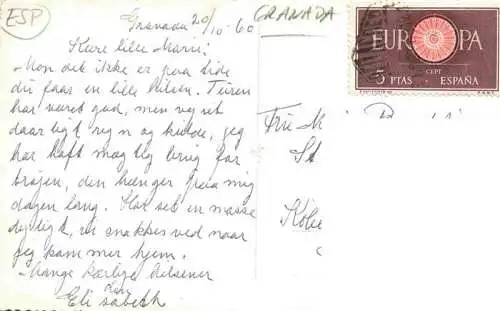 ESP
Granada 20/10-60
GRANADA
Kære lille Mami!
Mon det ikke er paa tide
du faar en lille hilsen. Turen
har været god, men vejret
daarligt regn og kulde, jeg
har haft mægtig brug for
trøjen, den hænger paa mig
dagen lang. Har set en masse
dejligt, vi snakkes ved naar
jeg kommer hjem.
Mange kærlige hilsener
Elisabeth
EUROPA
CEPT
5 PTAS · ESPAÑA
Fru
Købe